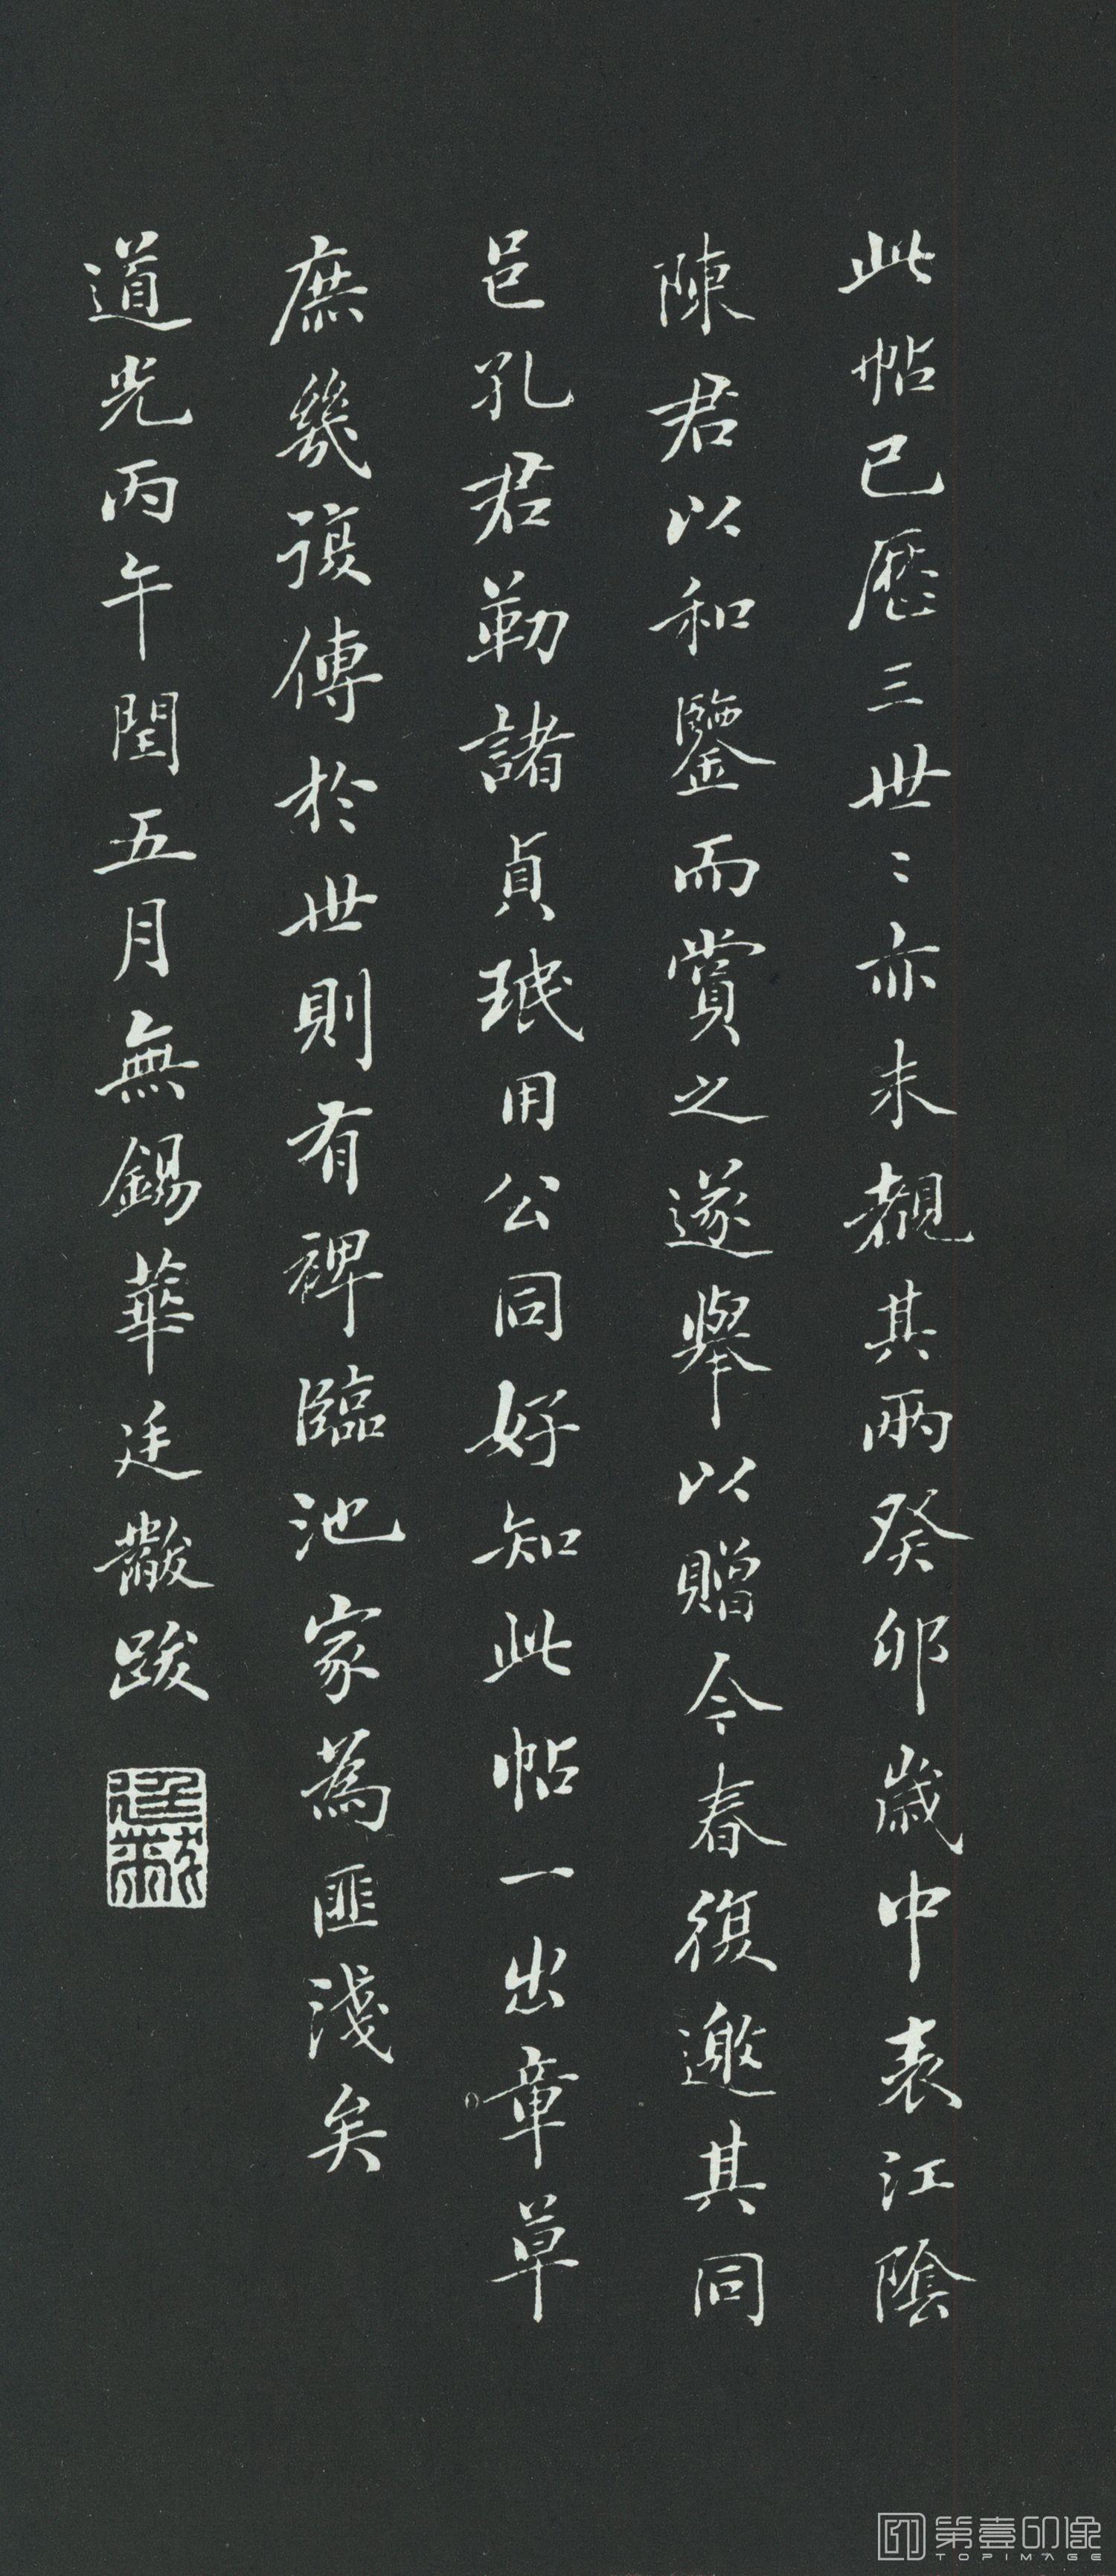 此帖已歷三世〻亦未覩其兩癸卯歲中表江陰
陳君以和鑒而賞之遂舉以贈今春復邀其同
邑孔君勒諸貞珉用公同好知此帖一出章草
庶幾復傳於世則有裨臨池家為匪淺矣
道光丙午閏五月無錫華廷黻跋
廷黻
第壹印像
TOPIMAGE